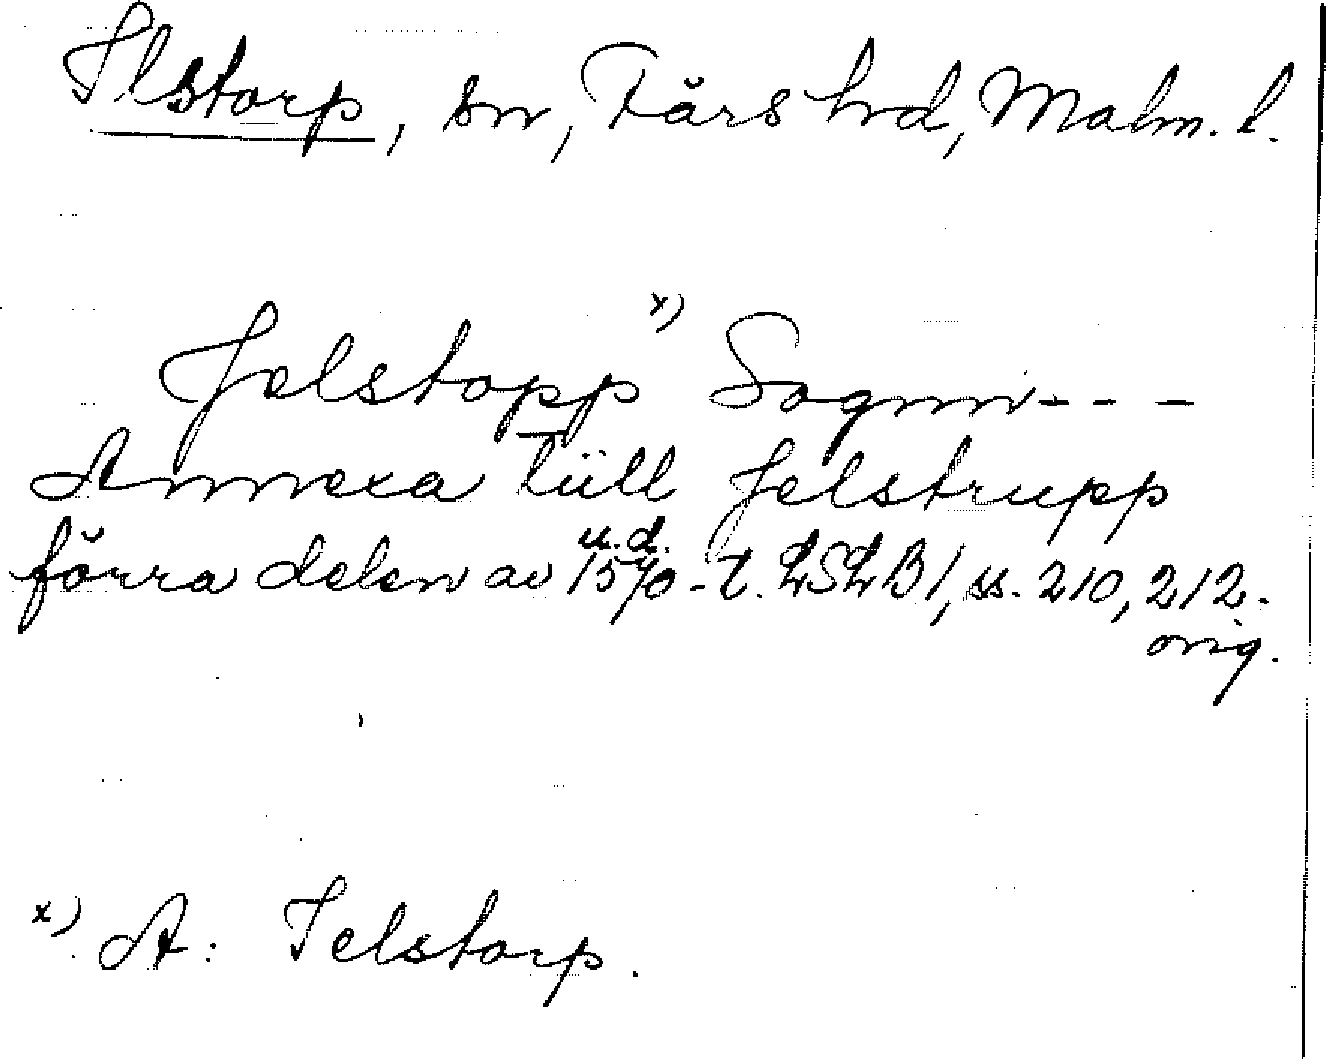 Ilstorp, sn, Färs hrd, Malm. l.
Jelstopp x) Sognn - - -
Annexa tüll Jelstrupp
u. d.
förra delen av 1570-t. LSLB1, ss. 210, 212.
orig.
x) A: Ielstorp.